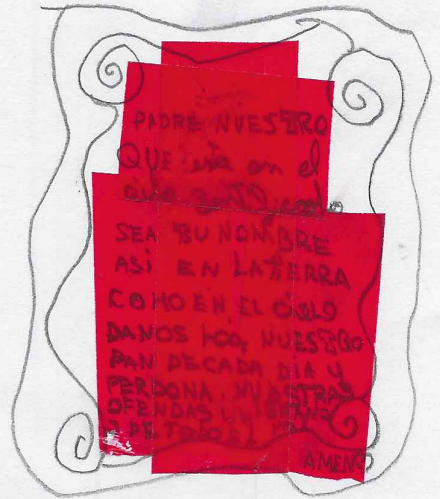 PADRE NUESTRO
QUE esta en el
cielo santificado
SEA TU NOMBRE
ASI EN LA TIERRA
COMO EN EL CIELO
DANOS HOY NUESTRO
PAN DE CADA DIA Y
PERDONA NUESTRAS
OFENDAS
DE TODO EL
AMEN